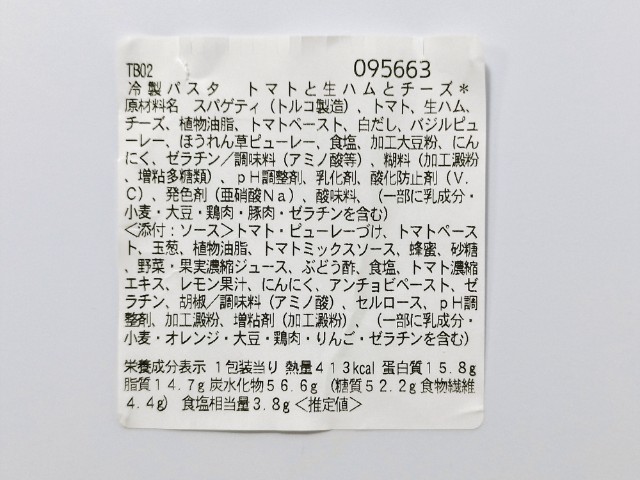 TB02 095663
冷製パスタ トマトと生ハムとチーズ*
原材料名 スパゲティ(トルコ製造)、トマト、生ハム、
チーズ、植物油脂、トマトペースト、白だし、バジルピュ
ーレー、ほうれん草ピューレー、食塩、加工大豆粉、にん
にく、ゼラチン/調味料(アミノ酸等)、糊料(加工澱粉
、増粘多糖類)、pH調整剤、乳化剤、酸化防止剤(V.
C)、発色剤(亜硝酸Na)、酸味料、(一部に乳成分・
小麦・大豆・鶏肉・豚肉・ゼラチンを含む)
<添付:ソース>トマト・ピューレーづけ、トマトペース
ト、玉葱、植物油脂、トマトミックスソース、蜂蜜、砂糖
、野菜・果実濃縮ジュース、ぶどう酢、食塩、トマト濃縮
エキス、レモン果汁、にんにく、アンチョビペースト、ゼ
ラチン、胡椒/調味料(アミノ酸)、セルロース、pH調
整剤、加工澱粉、増粘剤(加工澱粉)、(一部に乳成分・
小麦・オレンジ・大豆・鶏肉・りんご・ゼラチンを含む)
栄養成分表示 1包装当り 熱量413kcal 蛋白質15.8g
脂質14.7g 炭水化物56.6g (糖質52.2g 食物繊維
4.4g) 食塩相当量3.8g<推定値>